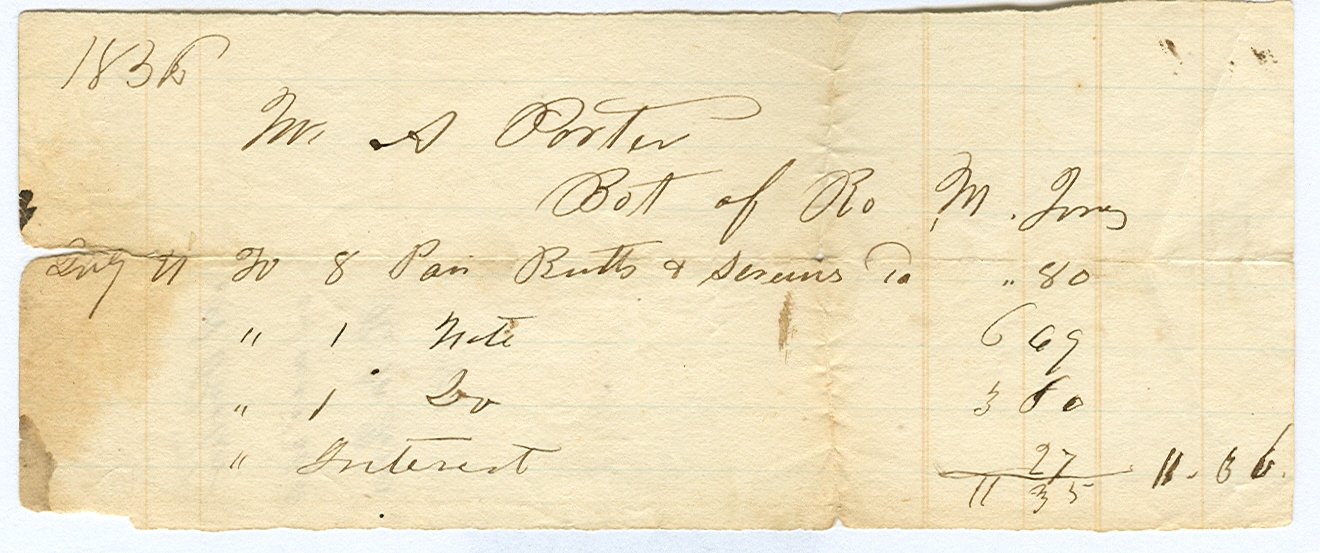 1836
Mr. A Porter
Bot of Ro M. Jones
July 11 To 8 Pair Butts & Screws 10 " 80
" 1 Note 6 69
" 1 Do 3 60
" Interest 27
11 35 11.36.